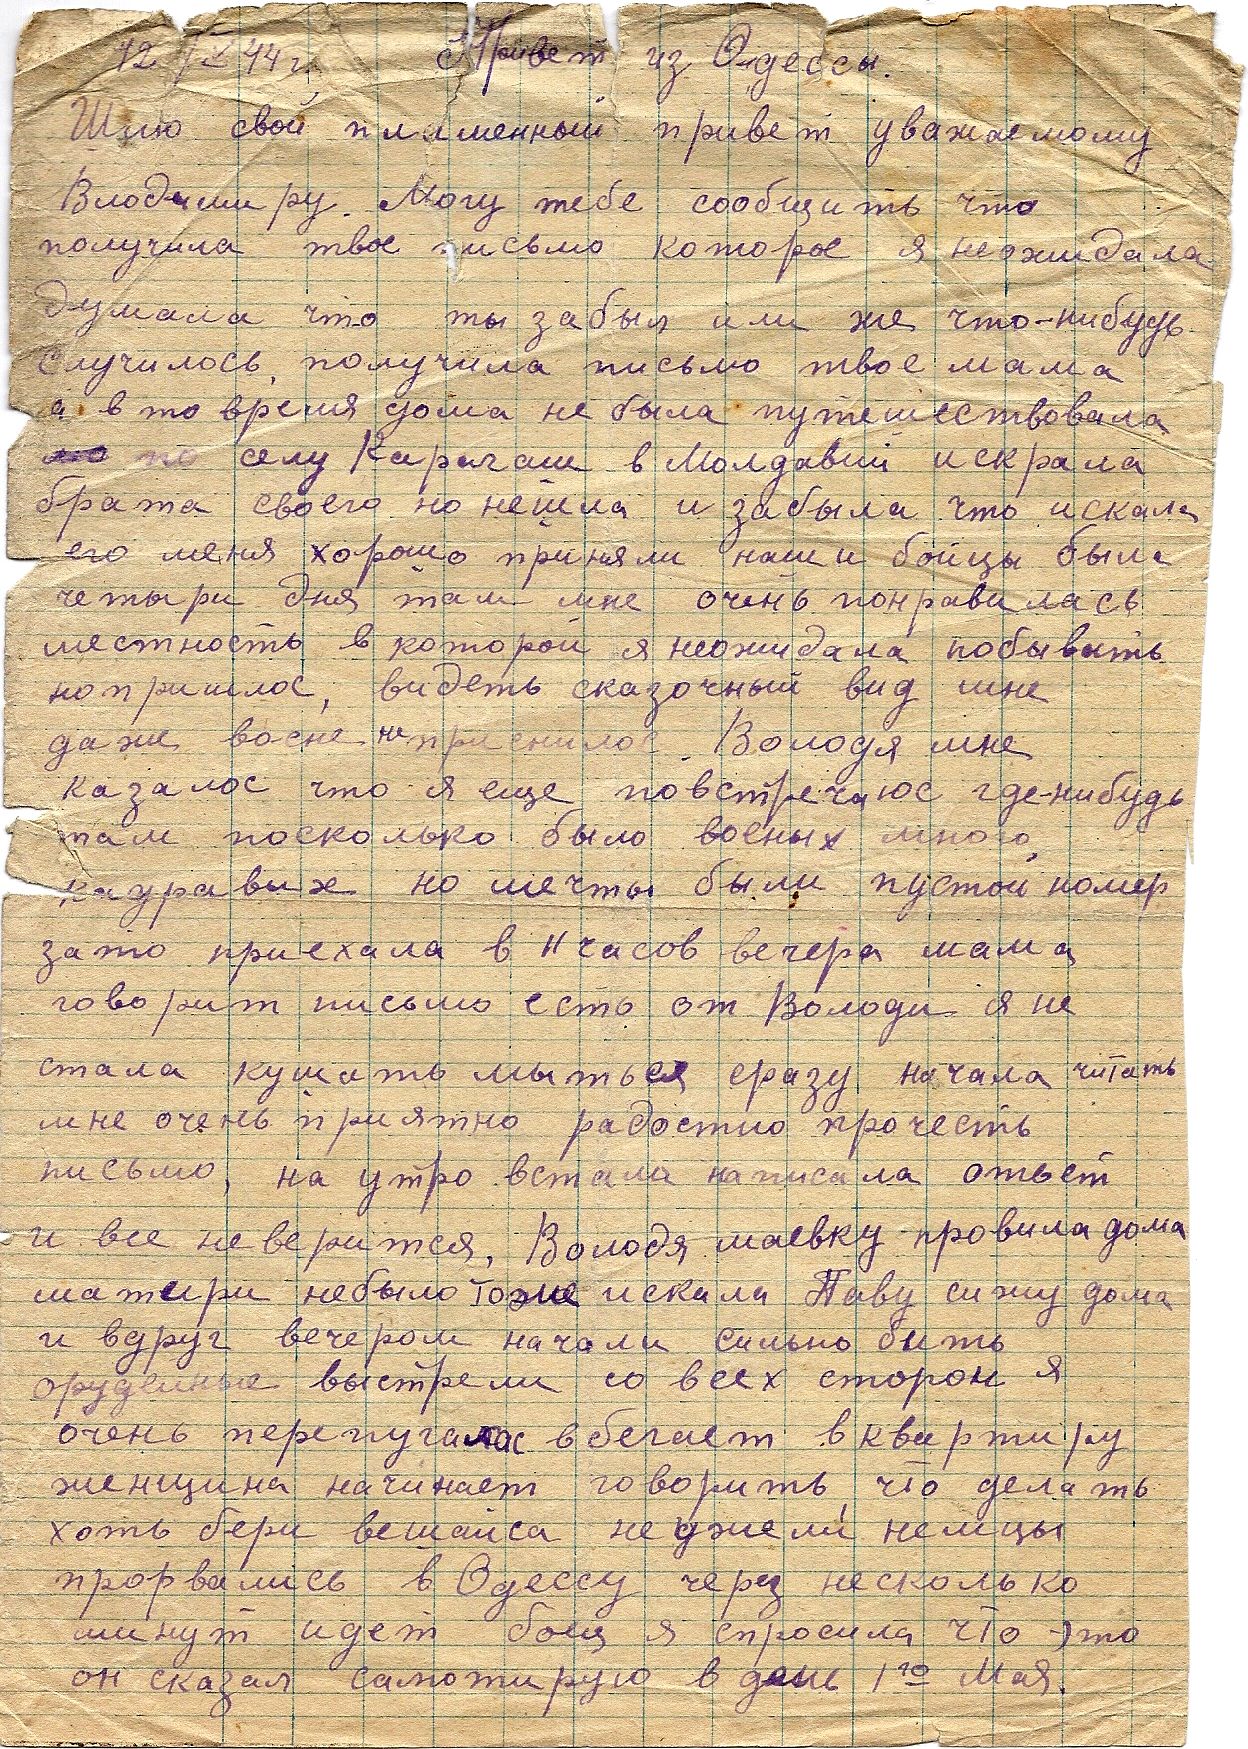 12 IX 44 г. Привет из Одессы.
Шлю свой пламенный привет уважаемому
Влодимиру. Могу тебе сообщить что
получила твое письмо которое я неожидала
думала что ты забыл или же что-нибудь
случилось, получила письмо твое мама
а в то время дома не была путешествовала
по селу Карагаш в Молдавии искрала
брата своего но нешла и забыла что искала
его меня хорошо приняли наши бойцы была
четыри дня там мне очень понравилась
местность в которой я неожидала побывать
но пришлос, видеть сказочный вид мне
даже восне не приснилос Володя мне
казалос что я еще повстречаюс где-нибудь
там посколько было военых много,
но мечты были пустой номер
зато приехала в 11 часов вечера мама
говорит письмо есть от Володи я не
стала кушать мыться сразу начала читать
мне очень приятно радостно прочесть
письмо, на утро встала написала ответ
и все неверится, Володя маевку провила дома
матири небыло тоже искала Паву сижу дома
и вдруг вечером начали сильно бить
орудейные выстрели со всех сторон я
очень перепугалас вбегает в квартиру
женщина начинает говорить, что делать
хоть бери вешайса неужели немцы
прорвались в Одессу через несколько
минут идет боец я спросила что это
он сказал самотирую в день 1го Мая.